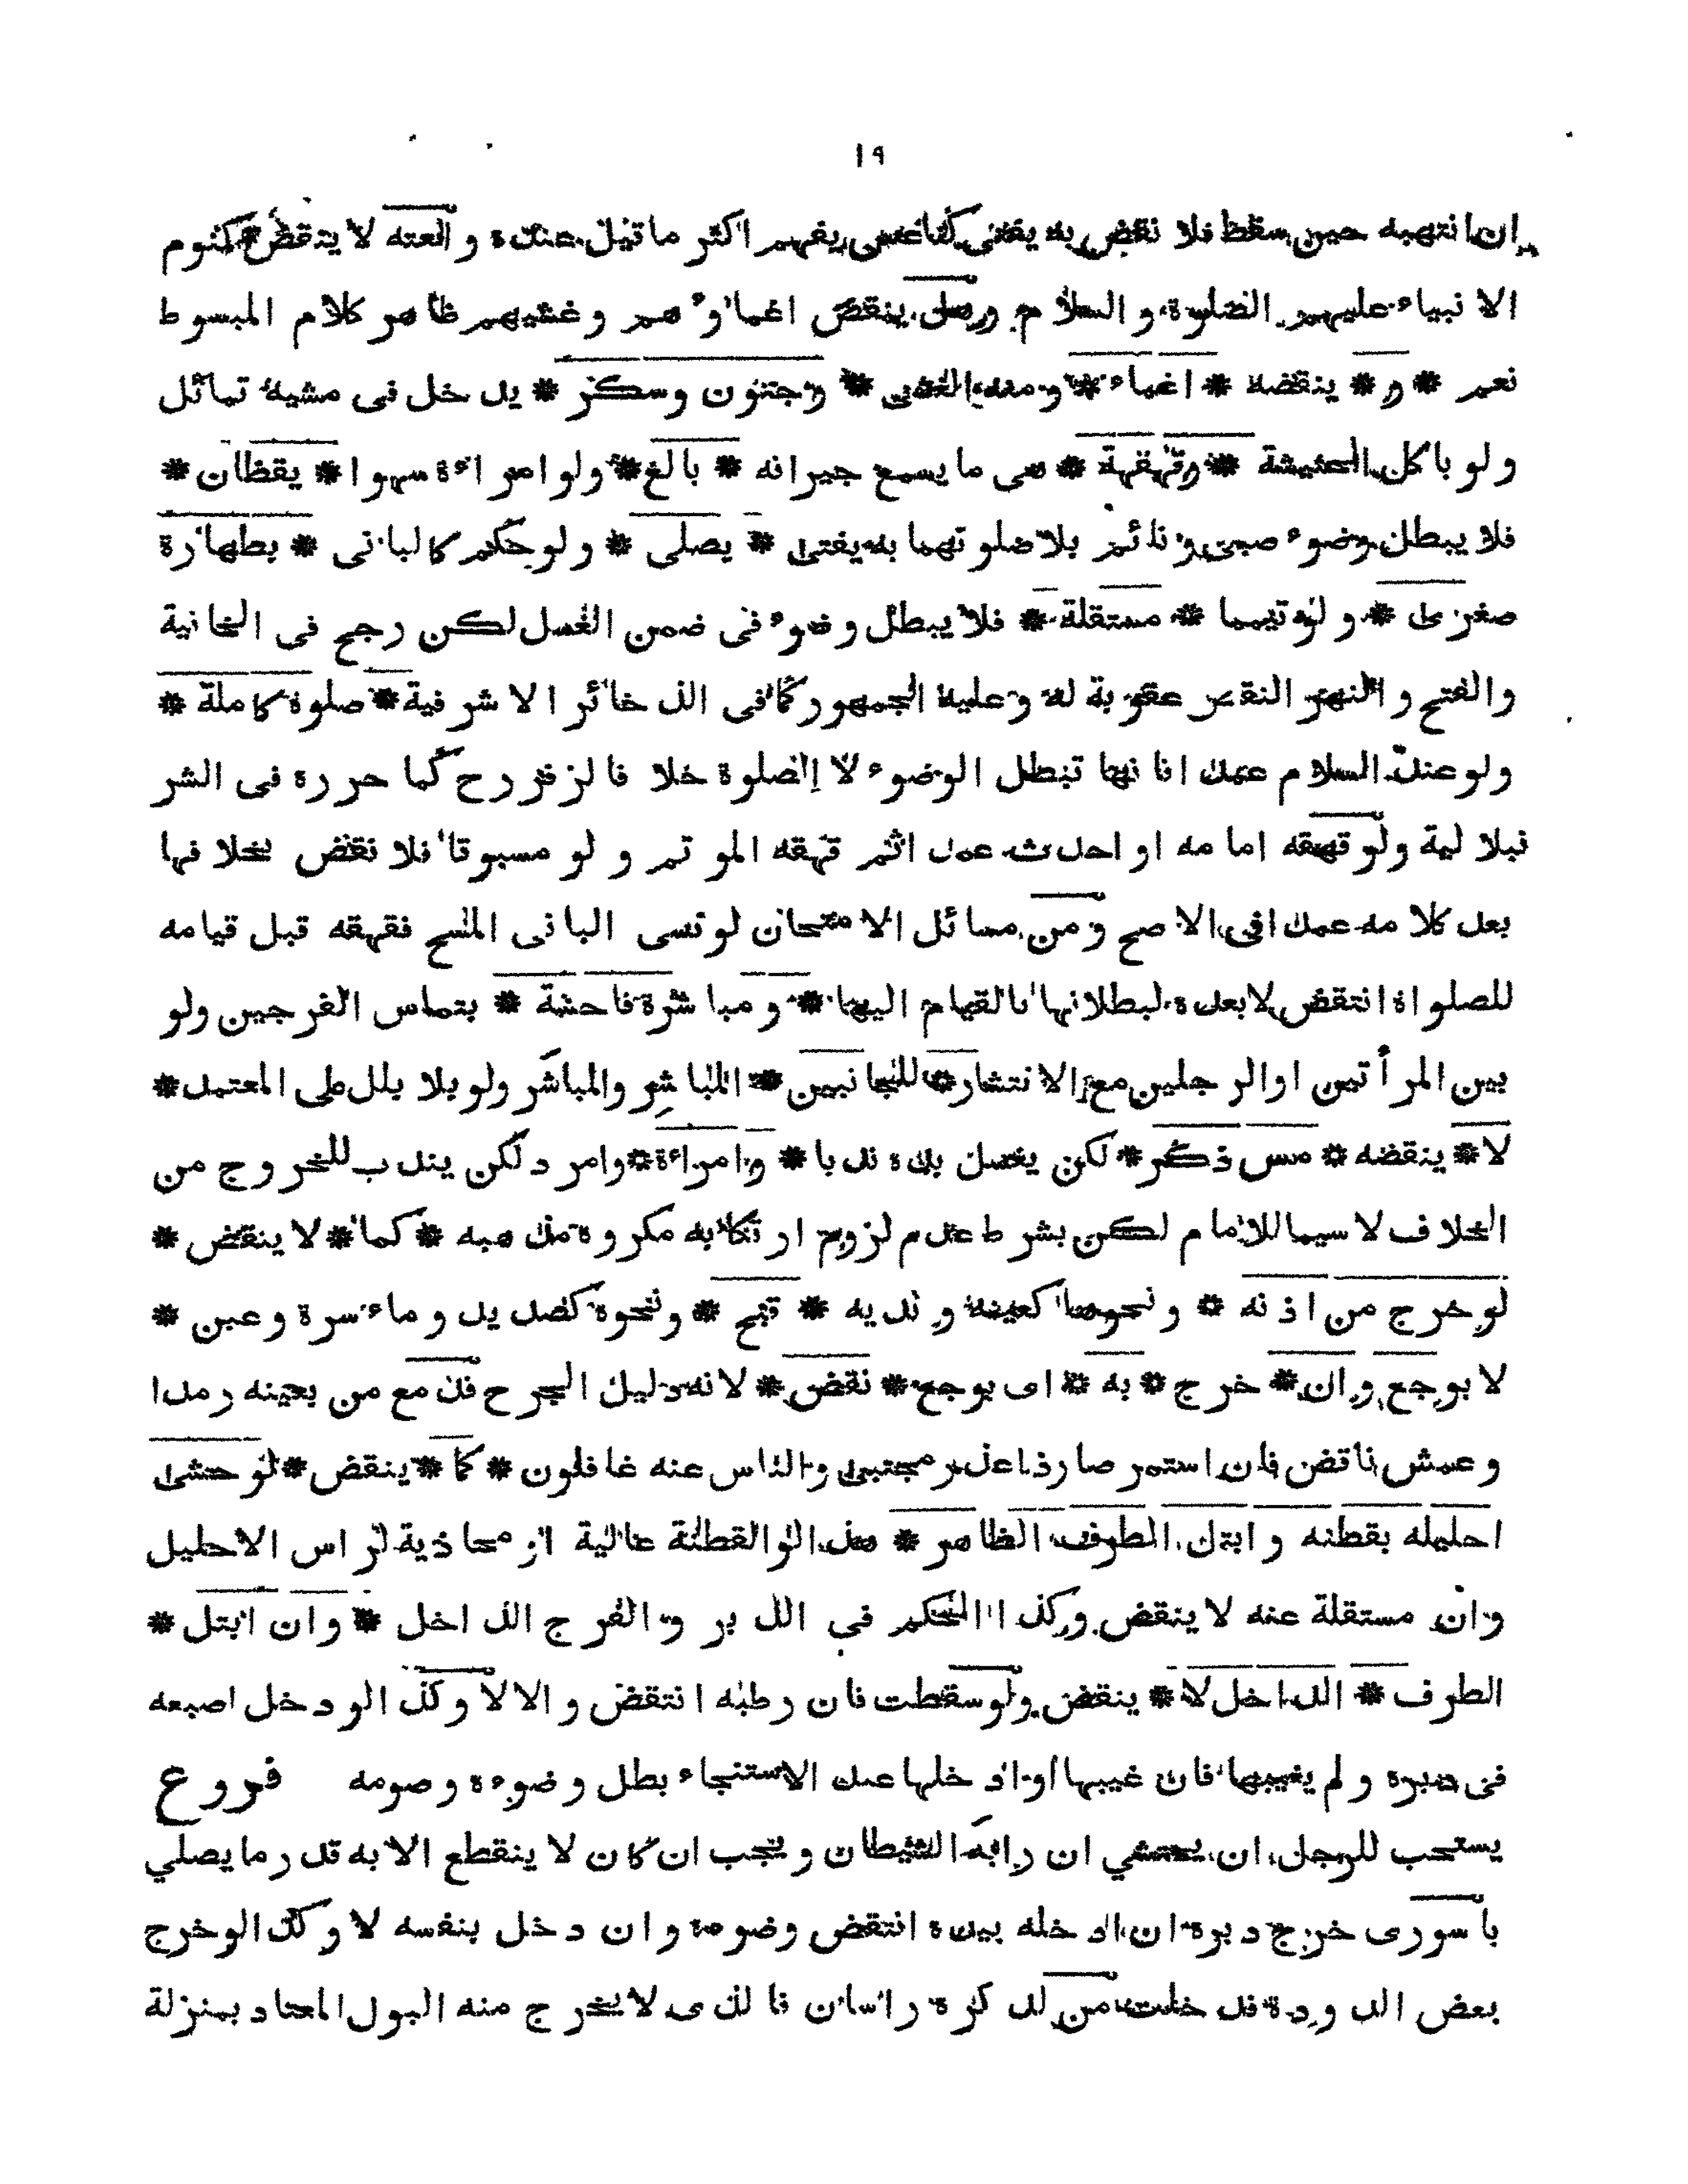 ١٩
ان انتبهه حين سقط فلا نقض به يفتى كناعس يفهم اكثر ما قيل عنده و العته لا ينقض كنوم
الا نبياء عليهم الصلوة و السلام وهل ينقض اغماؤ هم و غشيهم ظاهر كلام المبسوط
نعم * و * ينقضه * اغماء * و منه الغشى * و جنون وسكر * يد خل فى مشيه تمائل
ولو باكل الحشيشة * و قهقهة * هى ما يسمع جيرانه * بالغ * ولو امراءة سهوا * يقظان *
فلا يبطل وضوء صبى و نائم بلا صلوتهما به يفتى * يصلى * ولو حكم كالبانى * بطهارة
صغرى * و لو تيمما * مستقلة * فلا يبطل وضوء فى ضمن الغسل لكن رجح فى الخانية
والفتح و النهر النقض عقوبة له و عليه الجمهور كما فى الذخائر الا شرفية * صلوة كاملة *
ولو عند السلام عمدا فانها تبطل الوضوء لا الصلوة خلا فا لزفر رح كما حرره فى الشر
نبلا لية ولو قهقه امامه او احدث عمدا ثم قهقه المو تم و لو مسبوقا فلا نقض بخلا فها
بعد كلامه عمدا فى الا صح و من مسائل الا متحان لو نسى البانى المسح فقهقه قبل قيامه
للصلواة انتقض لا بعده لبطلانها بالقيام اليها * و مبا شرة فاحشة * بتماس الفرجين ولو
بين المرأتين او الرجلين مع الا نتشار * للجانبين * المباشر والمباشر ولو بلا بلل على المعتمد *
لا * ينقضه * مس ذكر * لكن يغسل يده ند با * و امراءة * وامرد لكن يندب للخروج من
الخلاف لا سيما للامام لكن بشرط عدم لزوم ارتكابه مكروه مذهبه * كما * لا ينقض *
لو خرج من اذنه * و نحوها كعينه و ثديه * قيح * ونحوه كصديد و ماء سرة و عين *
لا بوجع و ان * خرج * به * اى بوجع * نقض * لانه دليل الجرح فدمع من بعينه رمدا
و عمش ناقض فان استمر صار ذا عذر مجتبى والناس عنه غافلون * كما * ينقض * لو حشى
احليله بقطنه و ابتل الطرف الظاهر * هذا لو القطنة عالية او محاذية لراس الاحليل
وان مستقلة عنه لا ينقض وكذا الحكم في الدبر و الفرج الداخل * وان ابتل *
الطرف * الداخل لا * ينقض ولو سقطت فان رطبه انتقض و الا لا وكذا لو دخل اصبعه
فى دبره و لم يغيبها فان غيبها او اد خلها عند الاستنجاء بطل و ضوءه و صومه فروع
يستحب للرجل ان يحتشي ان رابه الشيطان و يجب ان كان لا ينقطع الا به قدر ما يصلي
با سورى خرج دبره ان اد خله بيده انتقض وضوءه و ان دخل بنفسه لا وكذا لو خرج
بعض الدودة فدخلت من لذكره راسان فالذى لا يخرج منه البول المعتاد بمنزلة